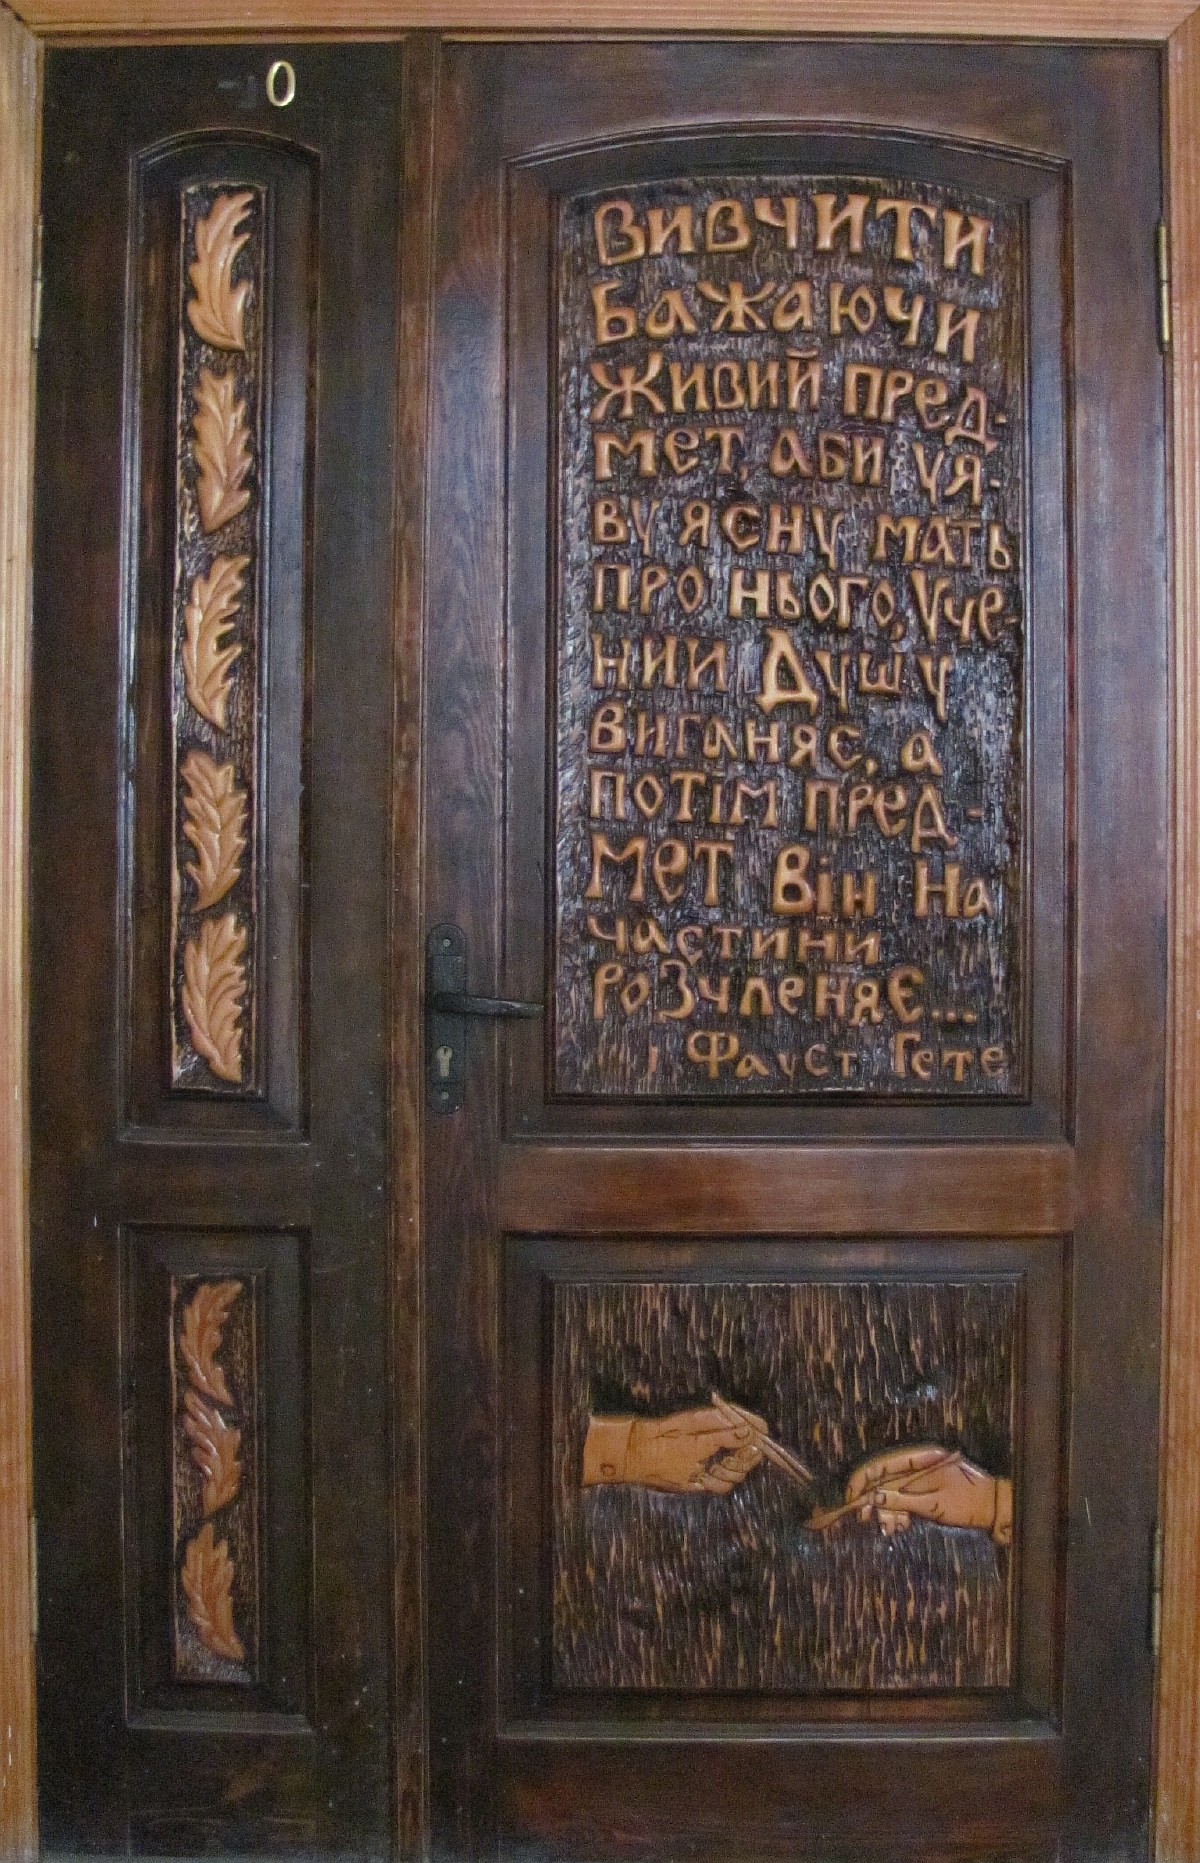 0
Вивчити
бажаючи
живий пред-
мет, аби уя-
ву ясну мать
про нього, Уче-
нии Душу
виганяє, а
потім пред-
мет він на
частини
розчленяє...
Фауст Гете